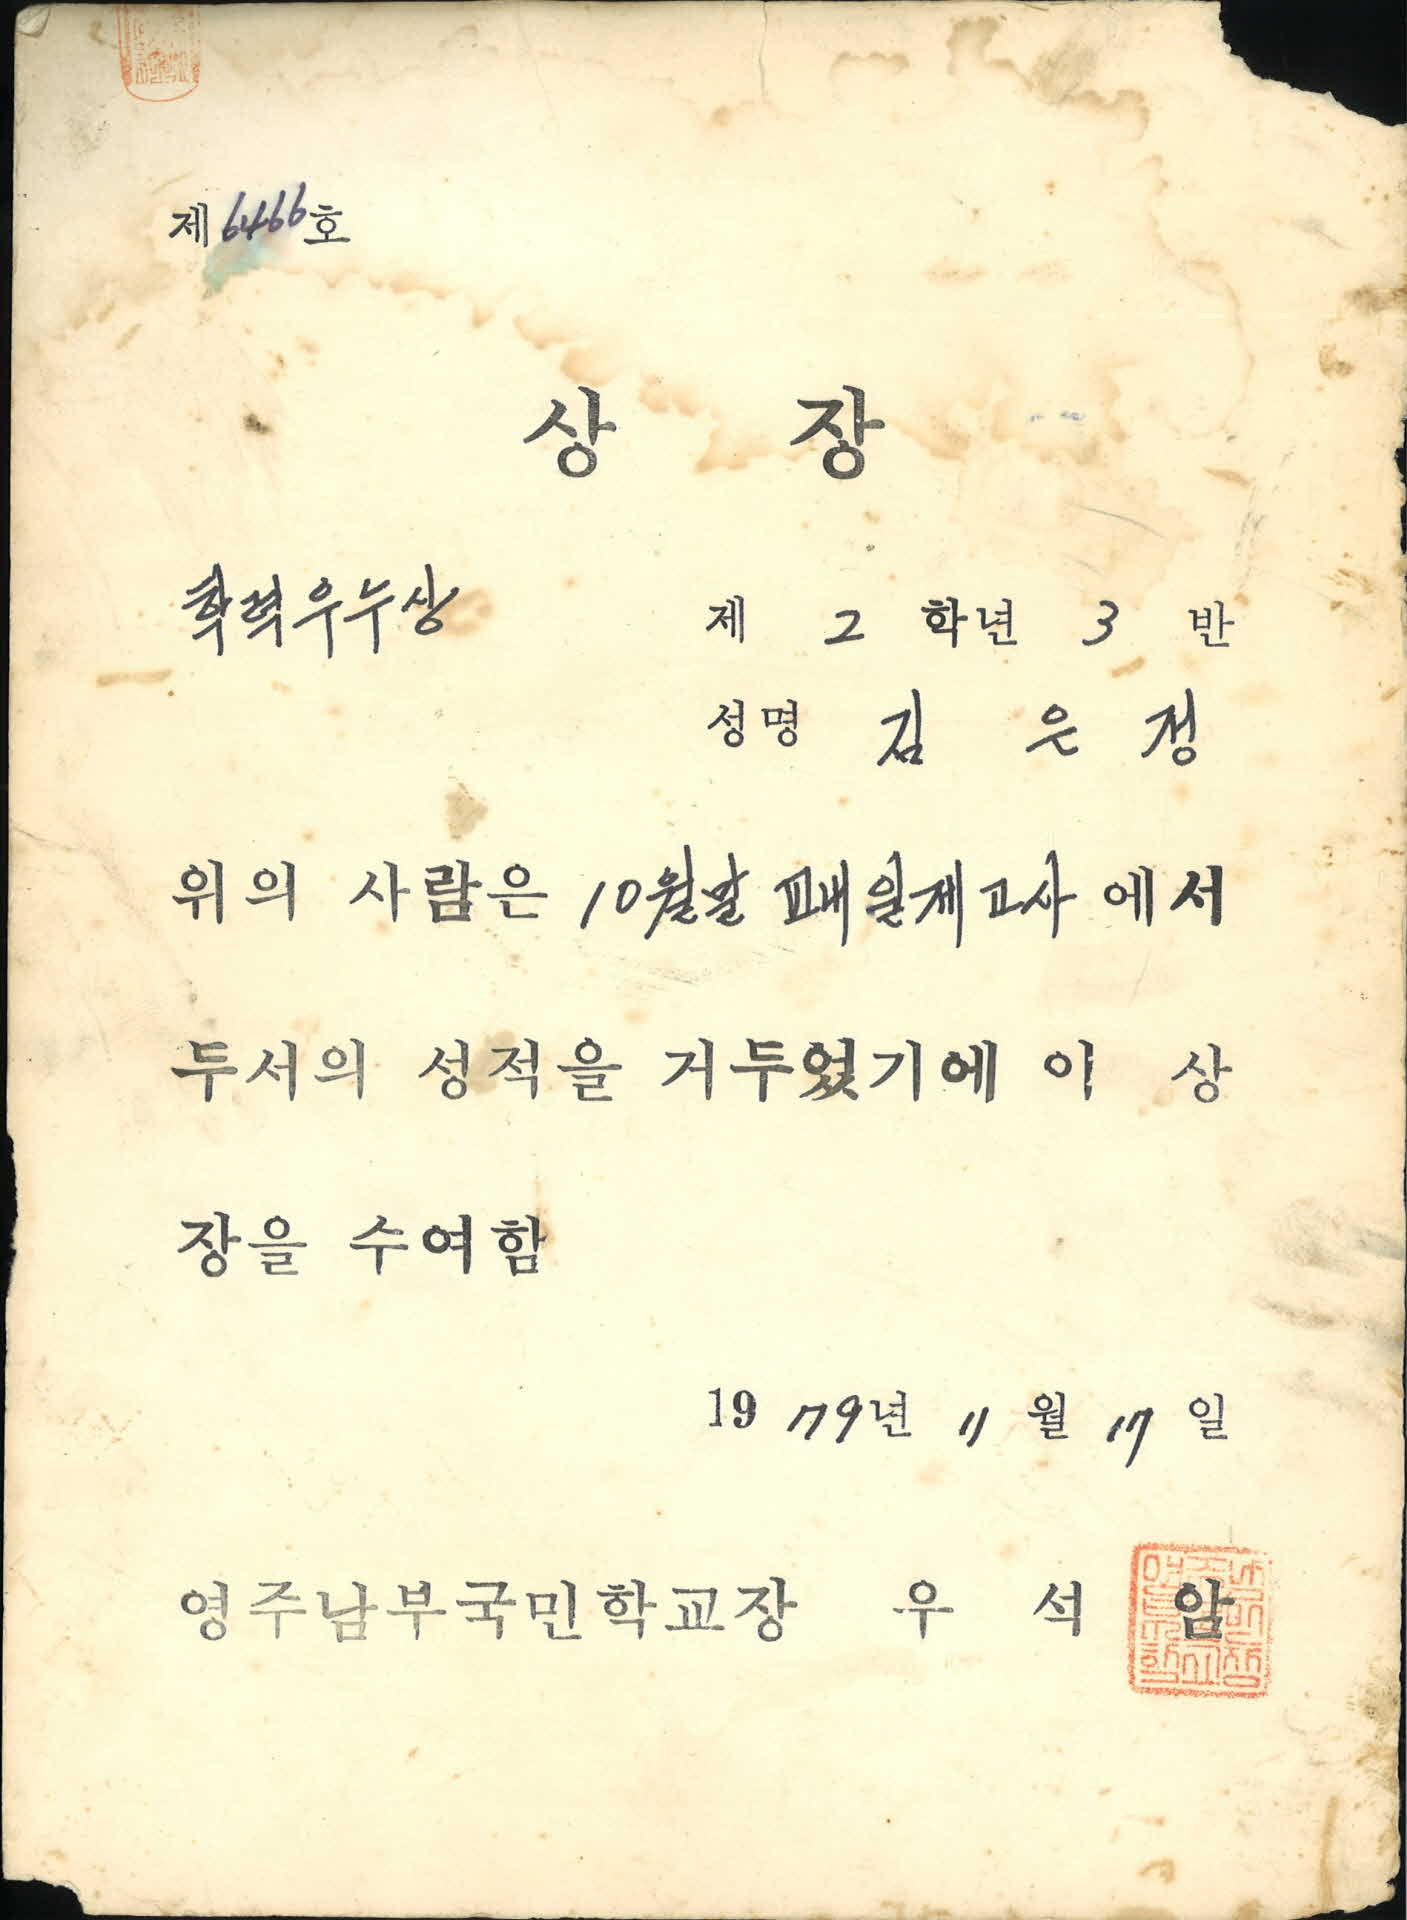 제 6466 호
상 장
학력우수상
제 2 학년 3 반
성명 김 은 정
위의 사람은 10월말 교내 일제고사 에서
두서의 성적을 거두었기에 이 상
장을 수여함
1979년 11 월 17 일
영주남부국민학교장 우 석 암